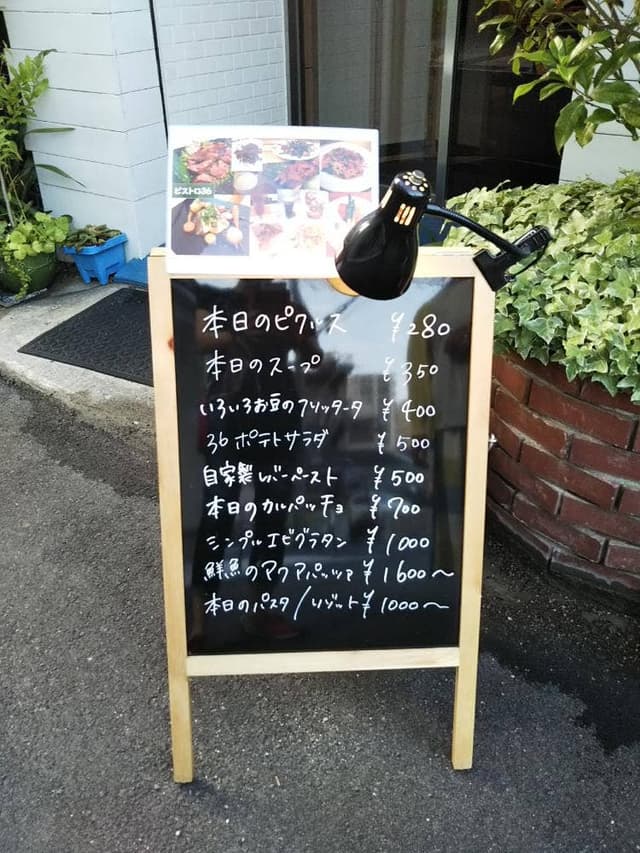 ビストロ36
本日のピクルス ¥280
本日のスープ ¥350
いろいろお豆のフリッタータ ¥400
36ポテトサラダ ¥500
自家製レバーペースト ¥500
本日のカルパッチョ ¥700
シンプルエビグラタン ¥1000
鮮魚のアクアパッツァ ¥1600〜
本日のパスタ/リゾット ¥1000〜